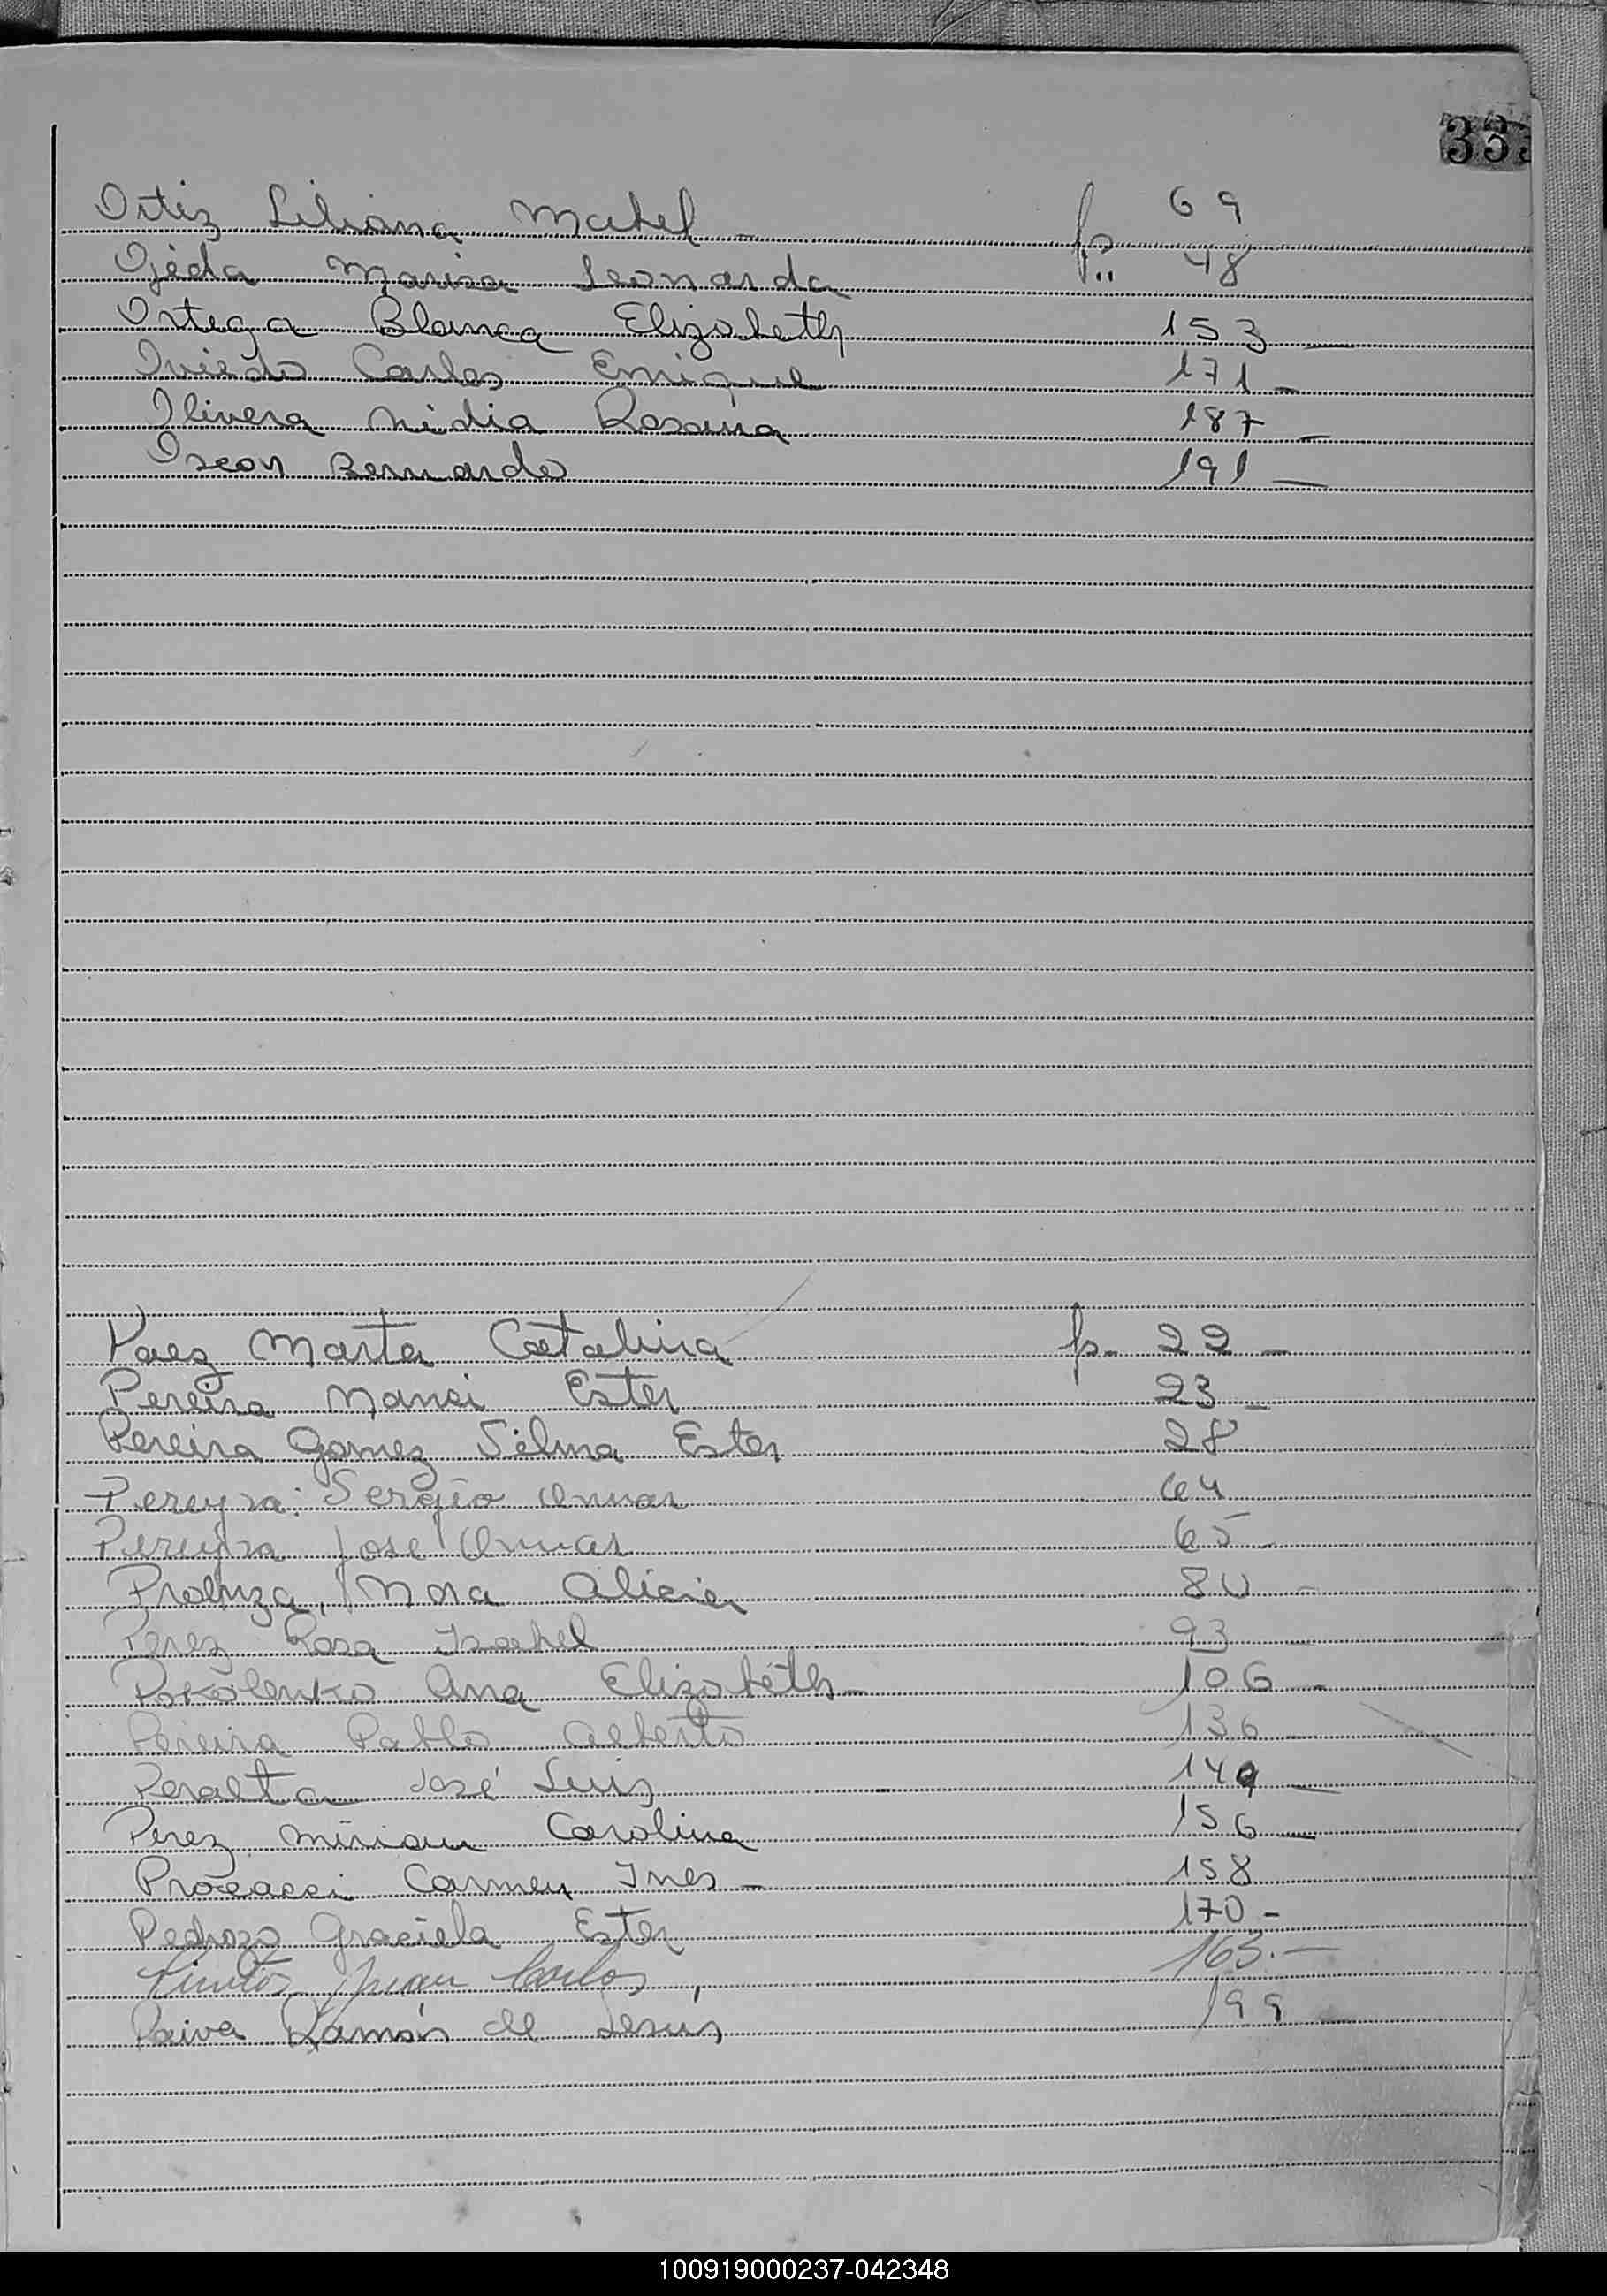 333
Ortiz Liliana Mabel - fs 69
Ojeda Marisa Leonarda f.. 48
Ortega Blanca Elizabeth 153 —
Oviedo Carlos Enrique 171 -
Olivera Nidia Rosana 187 -
Bernardo 191 —
Paez Marta Catalina fs. 22 -
Pereira Nanci Ester 23 -
Pereira Gomez Silma Ester 28
Pereyra: Sergio Omar 64
Pereyra José Omar 65
Nora Alicia 80 -
Perez Rosa Isabel 93 -
Pokolenko Ana Elizabeth - 106 -
Pereira Pablo Alberto 136 -
Peralta José Luis 149 —
Perez Miriam Carolina 156 —
Procacci Carmen Ines - 158
Pedrozo Graciela Ester 170 -
Juan Carlos, 163. —
Paiva Ramón de Jesús 199 -
100919000237-042348